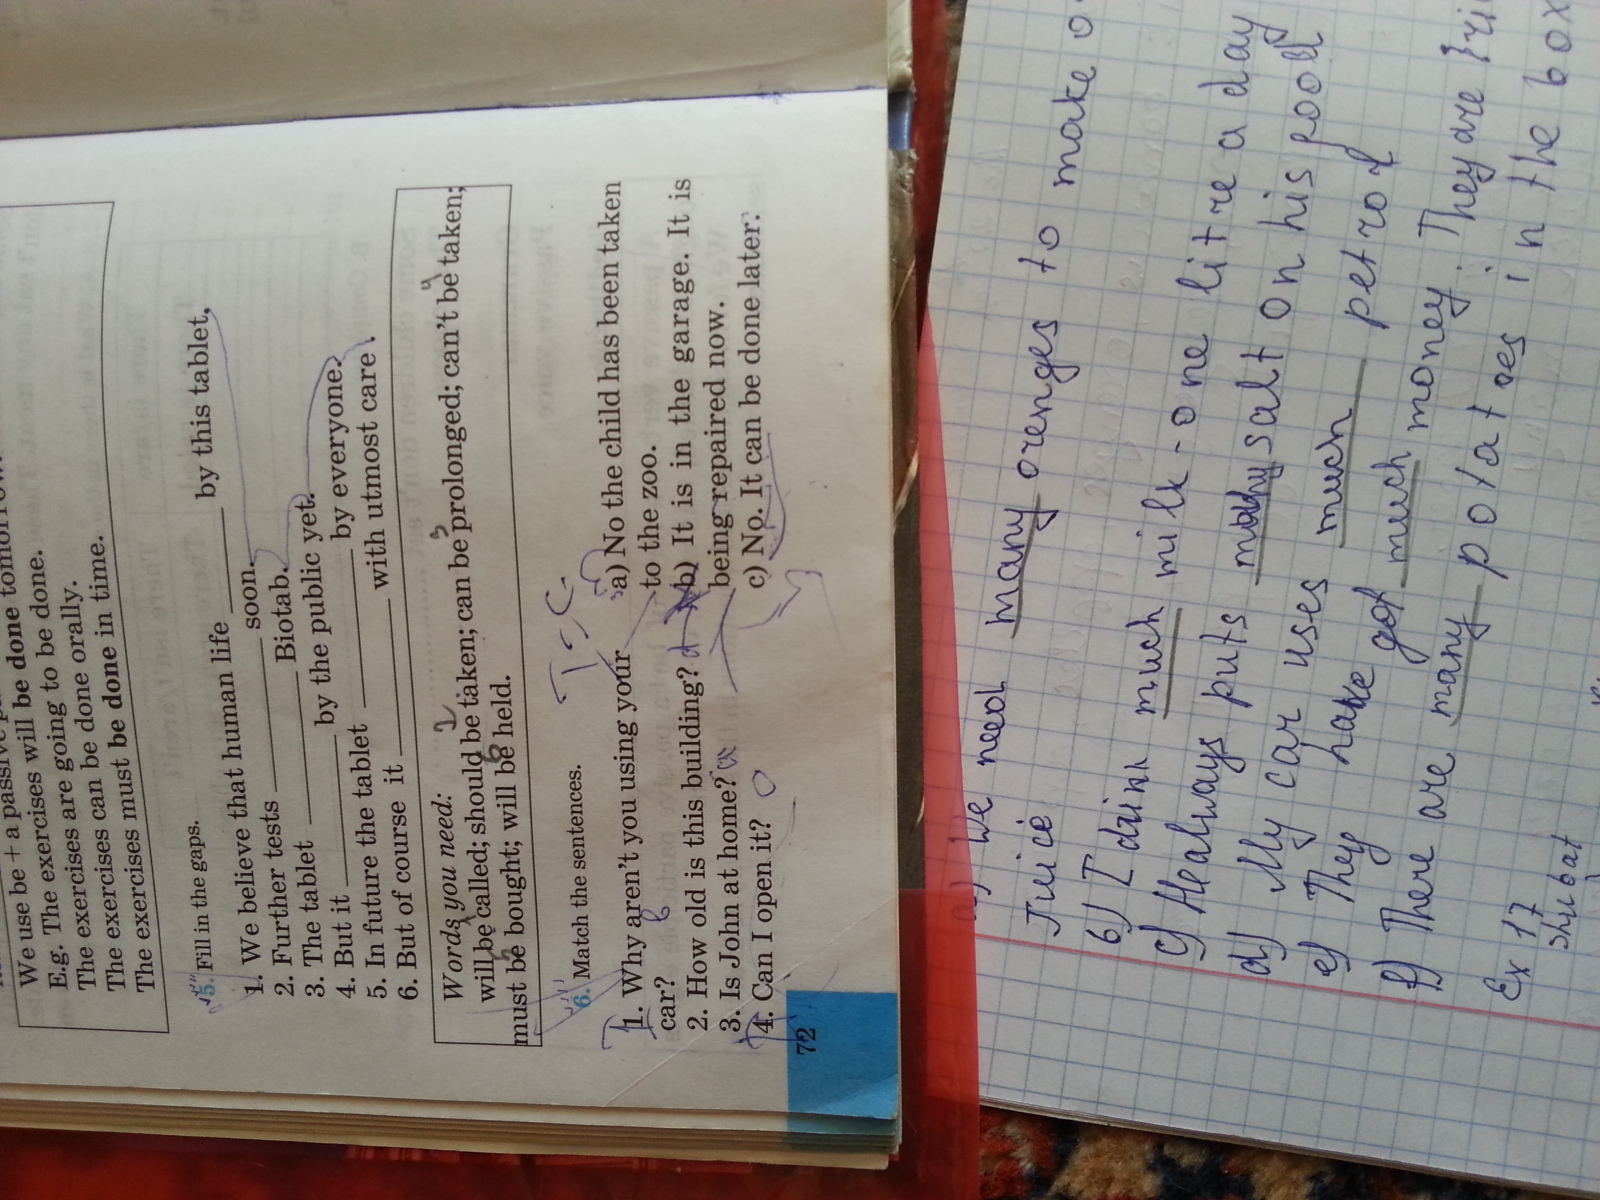 We use be + a passive
will be done tomorrow.
E.g. The exercises will be done.
The exercises are going to be done.
The exercises can be done orally.
The exercises must be done in time.
5. Fill in the gaps.
1. We believe that human life ______ by this tablet.
2. Further tests ______ soon.
3. The tablet ______ Biotab.
4. But it ______ by the public yet.
5. In future the tablet ______ by everyone.
6. But of course it ______ with utmost care.
Words you need:
will be called; should be taken; can be prolonged; can't be taken;
must be bought; will be held.
6. Match the sentences.
1. Why aren't you using your
car?
2. How old is this building?
3. Is John at home?
4. Can I open it?
a) No the child has been taken
to the zoo.
b) It is in the garage. It is
being repaired now.
c) No. It can be done later.
72
a) We need many orenges to make
Tuice
b) I drink much milk - one litre a day
c) He always puts many salt on his food
d) My car uses much petrol
e) They have got much money. They are
f) There are many potatoes in the box
Ex 17